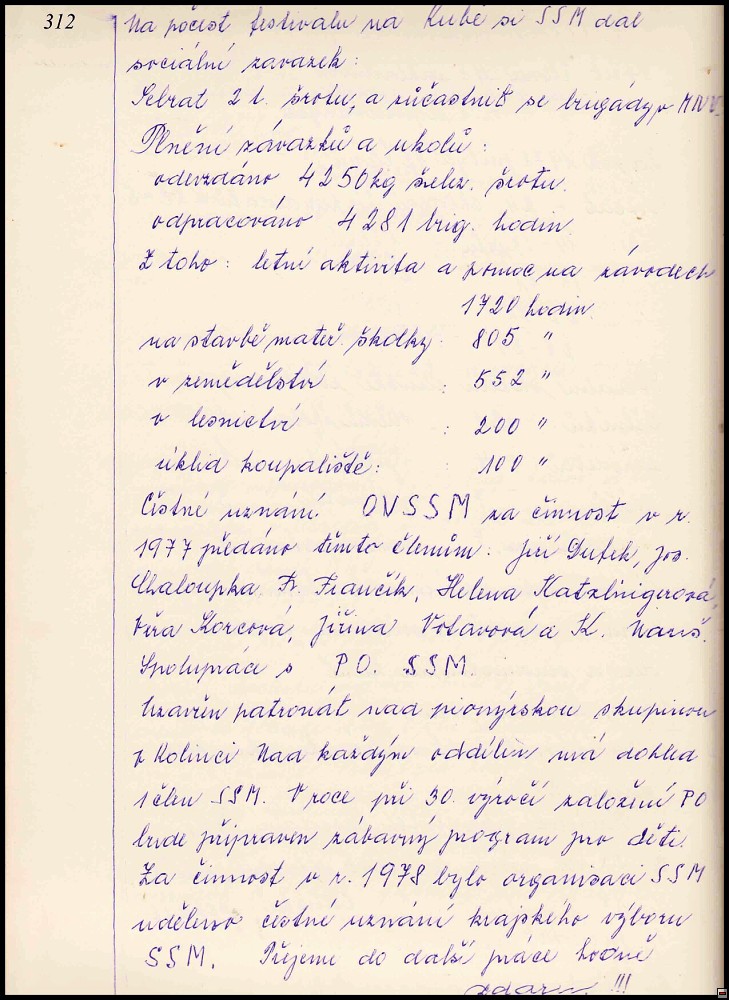 312
Na počest festivalu na Kubě si SSM dal
sociální zavazek:
Sebrat 2 t. šrotu, a zúčastnit se brigády v MNV.
Plnění závazků a ukolů:
odevzdáno 4250 kg želez. šrotu.
odpracováno 4281 brig. hodin
Z toho: letní aktivita a pomoc na závodech
1720 hodin.
na stavbě mateř. školky. 805 "
v zemědělství : 552 "
v lesnictví : 200 "
úklid koupaliště: 100 "
Čestné uznání OVSSM za činnost v r.
1977 předáno těmto členům: Jiří Dufek, Jos.
Chaloupka, Fr. Frančík, Helena Katzlingerová,
Věra Korcová, Jiřina Votavová a K. Nauš.
Spolupráce s PO. SSM.
Uzavřen patronát nad pionýrskou skupinou
v Kolinci Nad každým oddílem má dohled
1 člen SSM. V roce při 30. výročí založení PO
bude připraven zábavný program pro děti.
Za činnost v r. 1978 bylo organisaci SSM
uděleno čestné uznání krajského výboru
SSM. Přejeme do další práce hodně
zdaru !!!